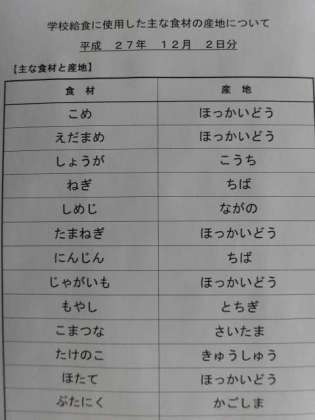 学校給食に使用した主な食材の産地について
平成 27年 12月 2日分
【主な食材と産地】
食材 産地
こめ ほっかいどう
えだまめ ほっかいどう
しょうが こうち
ねぎ ちば
しめじ ながの
たまねぎ ほっかいどう
にんじん ちば
じゃがいも ほっかいどう
もやし とちぎ
こまつな さいたま
たけのこ きゅうしゅう
ほたて ほっかいどう
ぶたにく かごしま